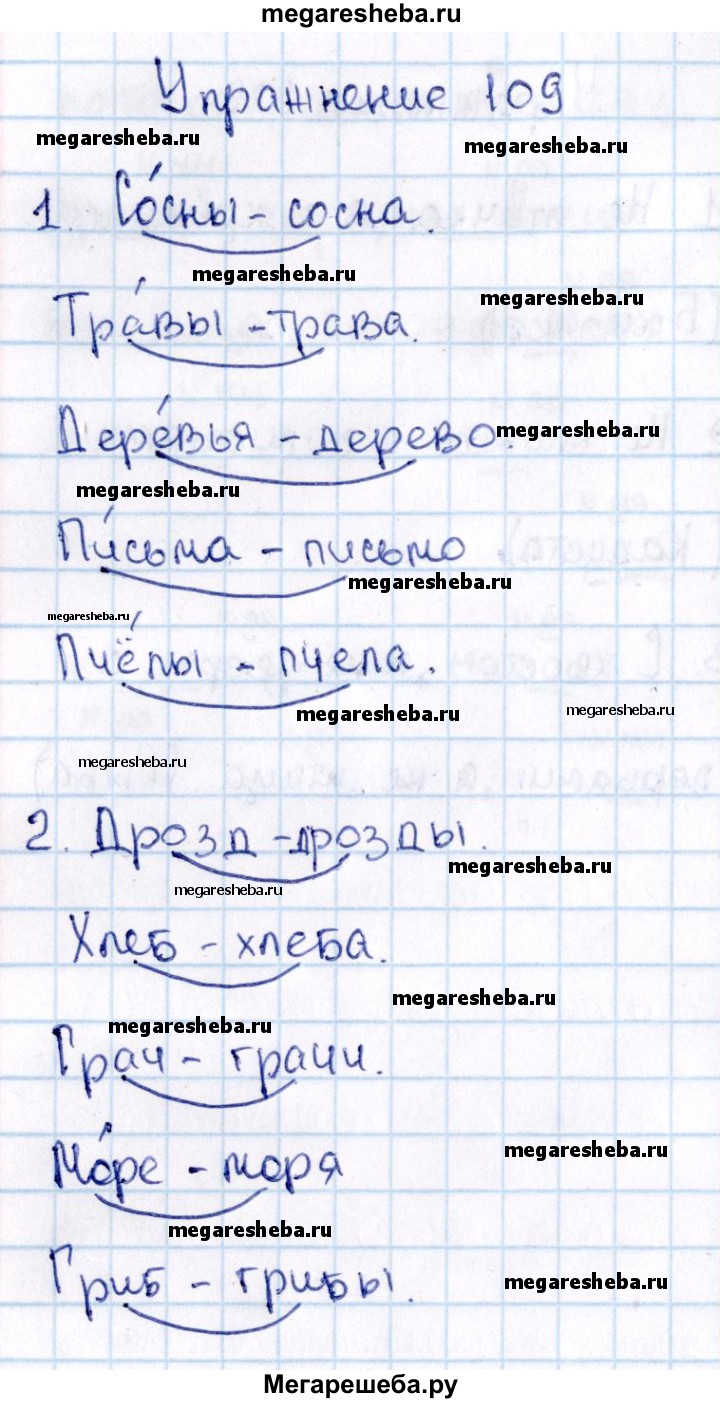 megaresheba.ru
Упражнение 109
megaresheba.ru
megaresheba.ru
1. Со́сны - сосна.
megaresheba.ru
megaresheba.ru
Тра́вы - трава.
Дере́вья - дерево.
megaresheba.ru
megaresheba.ru
Пи́сьма - письмо
megaresheba.ru
megaresheba.ru
Пчё́лы - пчела.
megaresheba.ru
megaresheba.ru
megaresheba.ru
2. Дрозд - дрозды.
megaresheba.ru
megaresheba.ru
Хлеб - хлеба.
megaresheba.ru
megaresheba.ru
Грач - грачи.
Мо́ре - моря
megaresheba.ru
megaresheba.ru
Гриб - грибы.
megaresheba.ru
Мегарешеба.ру